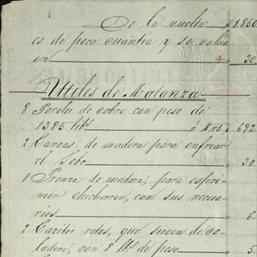 De la vuelta $1850
es de poca cuantia y se valua
en 30.
Utiles de Matanza
8 Peroles de cobre con peso de
1385 lib.s á $0.5 692.
2 Canoas de madera para enfriar
el Sebo 30.
1 Prenza de madera, para espri-
mir chicharron, con sus recu-
6.
2 Cazitos rotos, que sirven de co-
ladera, con 8 lb.s de peso 5.